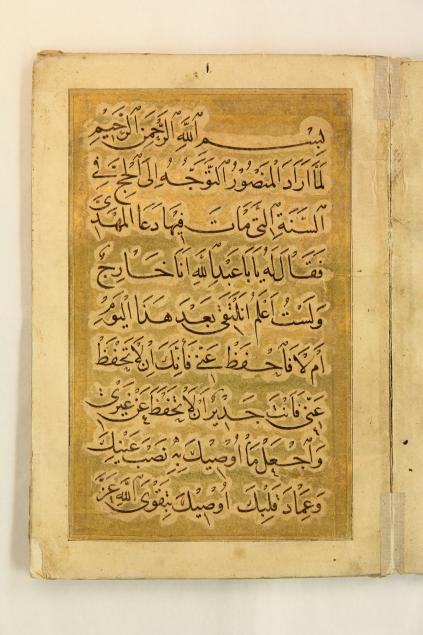 ١
بِسْمِ اللَّهِ الرَّحْمَنِ الرَّحِيمِ
لَمَّا اَرَادَ الْمَنْصُورُ التَّوَجُّهَ اِلَى الْحَجِّ فِي
السَّنَةِ الَّتِي مَاتَ فِيهَا دَعَا الْمَهْدِيَّ
فَقَالَ لَهُ يَا اَبَا عَبْدِ اللَّهِ اَنَا خَارِجٌ
وَلَسْتُ اَعْلَمُ اَنَلْتَقِي بَعْدَ هَذَا الْيَوْمِ
اَمْ لَا فَاحْفَظْ عَنِّي فَاِنَّكَ اِنْ لَا تَحْفَظْ
عَنِّي فَاَنْتَ جَدِيرٌ اَنْ لَا تَحْفَظَ عَنْ غَيْرِي
وَاجْعَلْ مَا اُوصِيكَ بِهِ نَصْبَ عَيْنَيْكَ
وَعِمَادَ قَلْبِكَ اُوصِيكَ بِتَقْوَى اللَّهِ عَزَّ